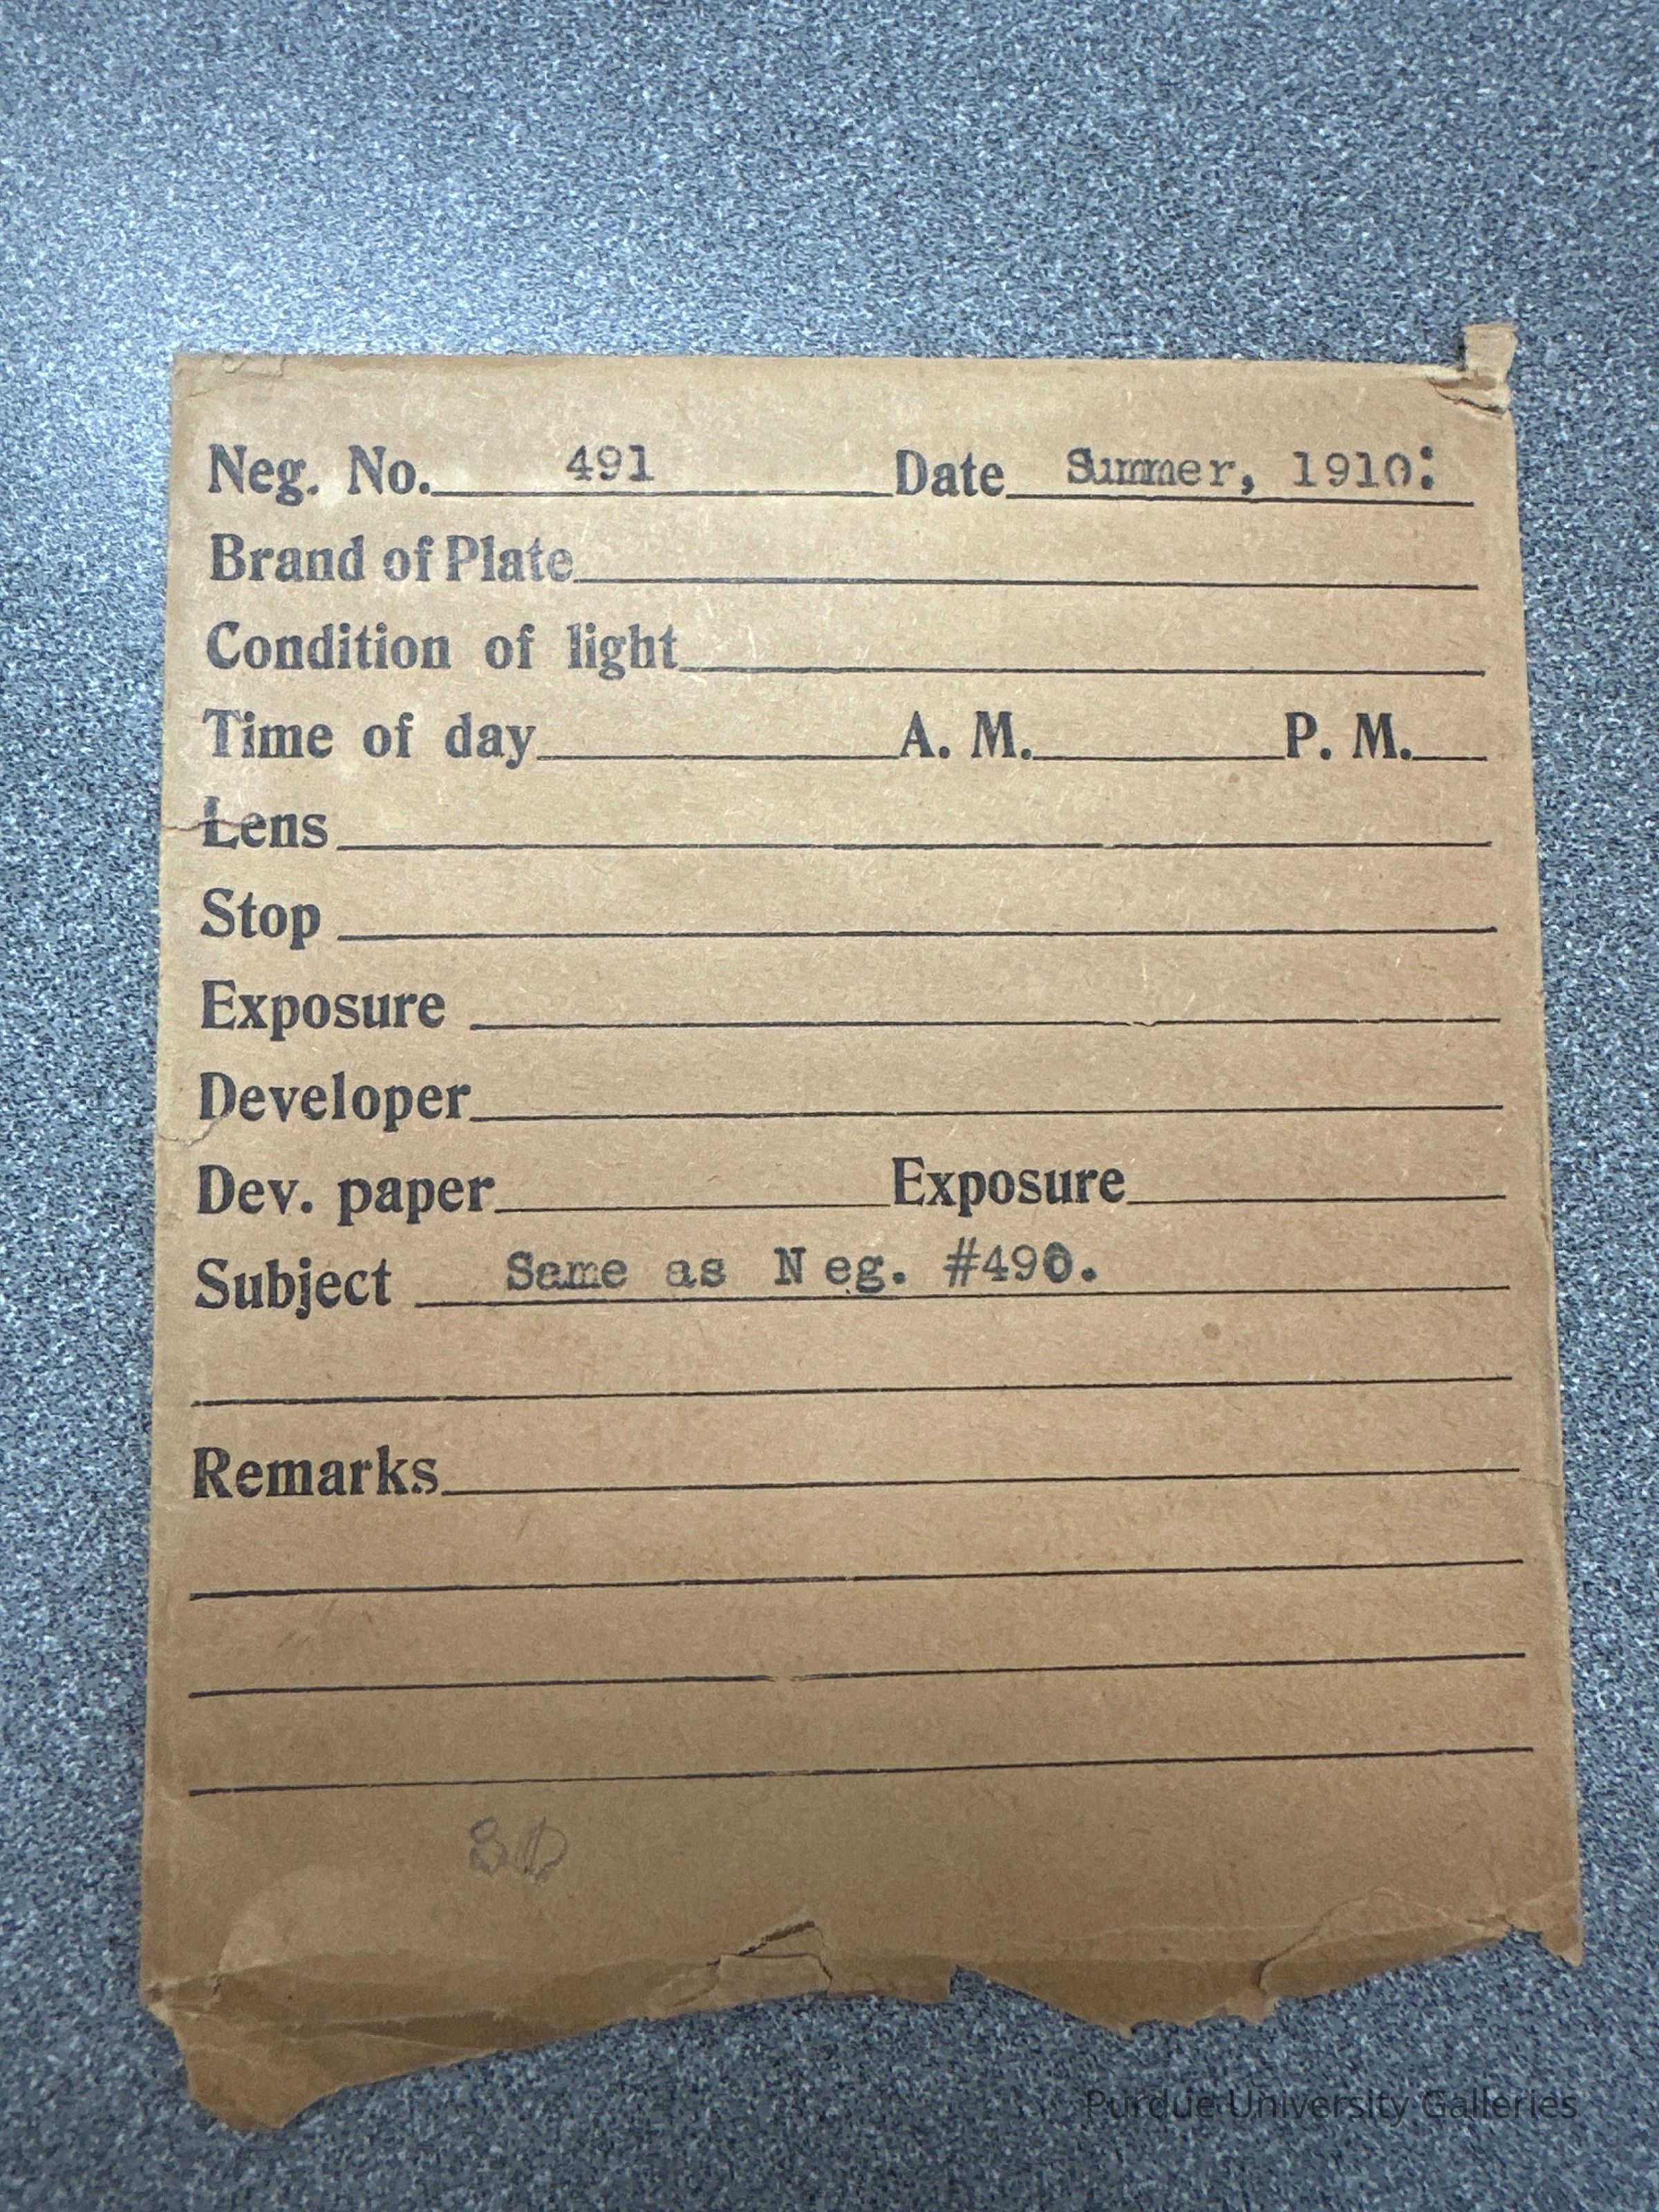 Neg. No. 491 Date Summer, 1910:
Brand of Plate
Condition of light
Time of day A. M. P. M.
Lens
Stop
Exposure
Developer
Dev. paper Exposure
Subject Same as Neg. #490.
Remarks
Purdue University Galleries